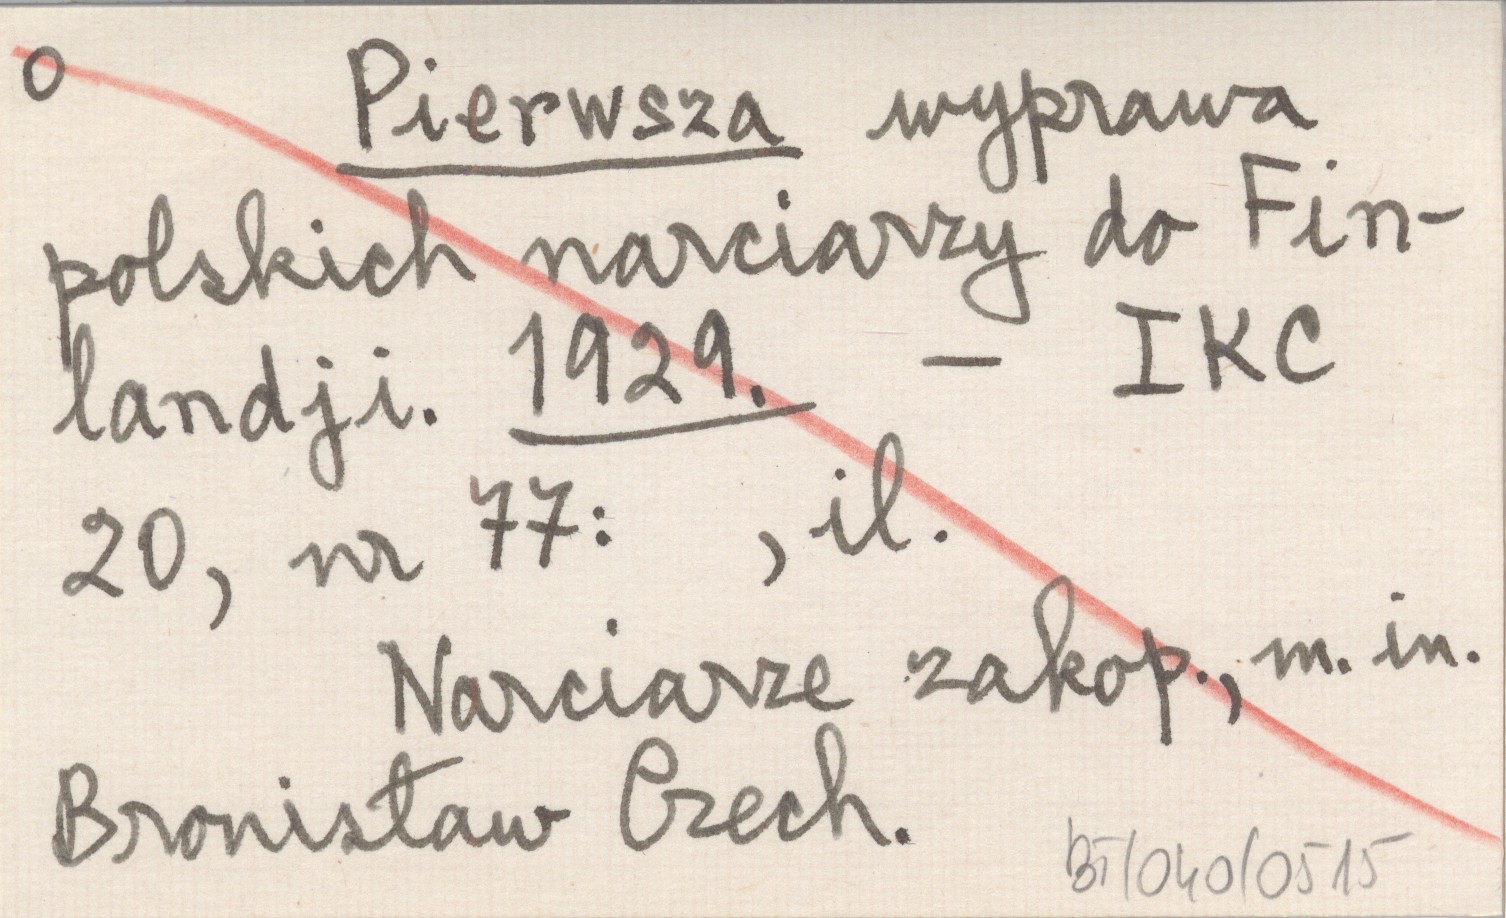 o Pierwsza wyprawa
polskich narciarzy do Fin-
landji. 1929. – IKC
20, nr 77: , il.
Narciarze zakop., m. in.
Bronisław Czech.
BT/040/0515